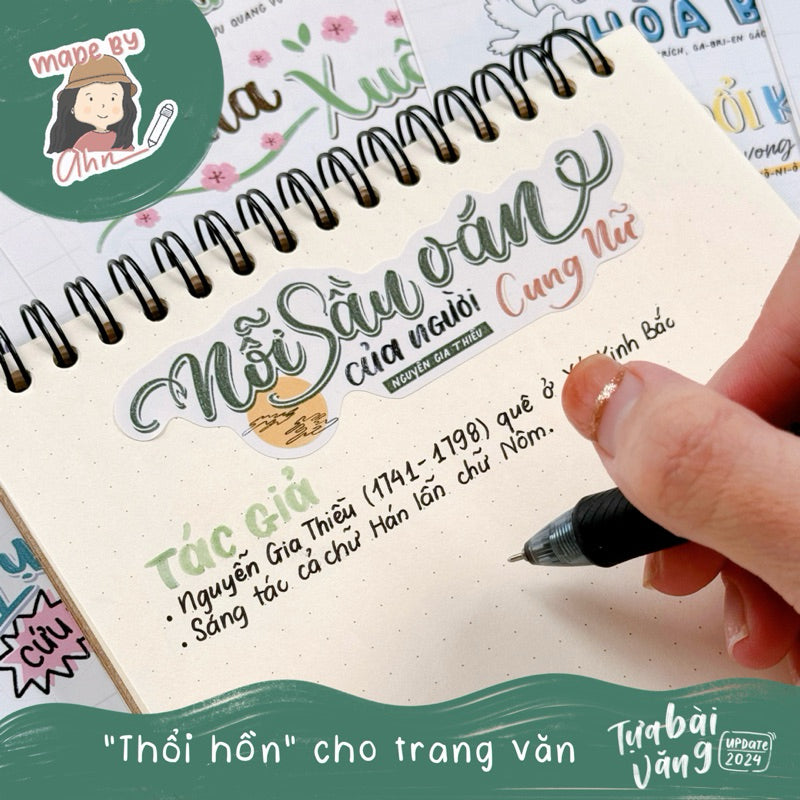 MADE BY
ahn
Xuâ
HÒA B
RÍCH, GA-BRI-EN GÁC
ỔI K
vong
Nỗi Sầu oán
của người
Cung Nữ
NGUYỄN GIA THIỀU
Tác giả
• Nguyễn Gia Thiều (1741-1798) quê ở Kinh Bắc
• Sáng tác cả chữ Hán lẫn chữ Nôm.
CỨU
"Thổi hồn" cho trang văn
Tựa bài
văng
UPDATE
2024